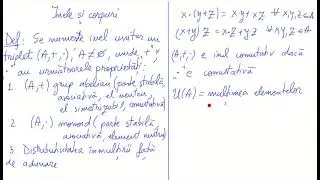 Inele și corpuri
Def: Se numește inel unitar un
triplet (A,+,·), A≠∅, unde "+", "·"
au următoarele proprietăți:
1. (A,+) grup abelian (parte stabilă,
asociativă, el neutru,
el simetrizabil, comutativă)
2. (A,·) monoid (parte stabilă,
asociativă, element neutru)
3. Distributivitatea înmulțirii față
de adunare
x·(y+z) = x·y+x·z ∀ x,y,z∈A
(x+y)·z = x·z+y·z ∀ x,y,z∈A
(A,+,·) e inel comutativ dacă
"·" e comutativă
U(A) = mulțimea elementelor